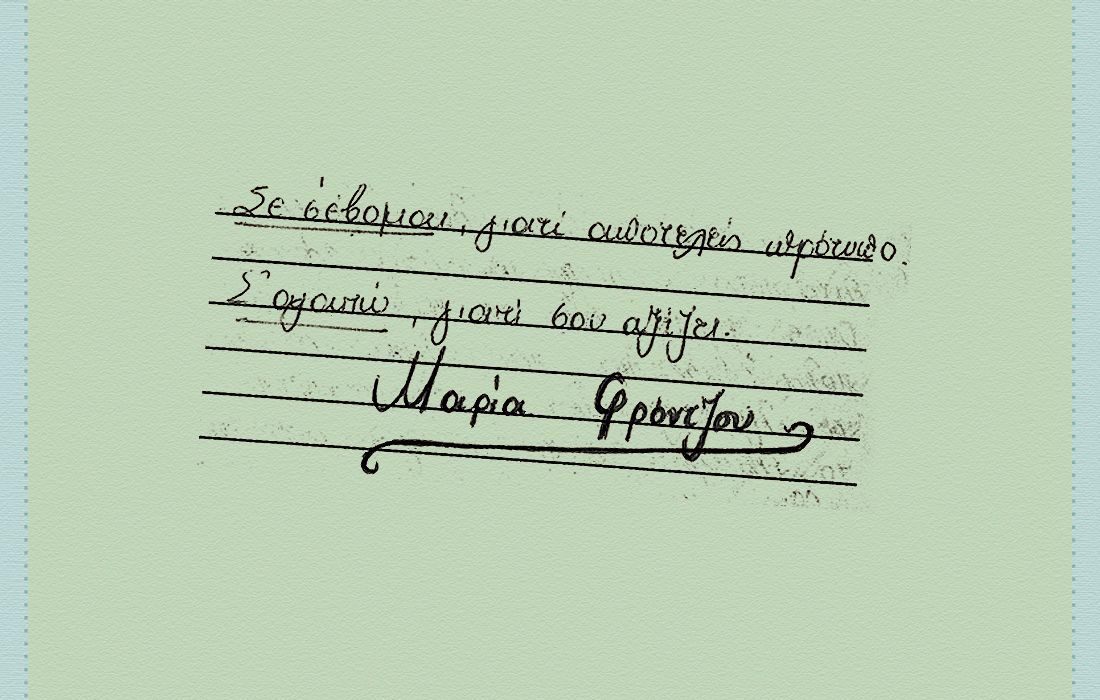 Σε σέβομαι, γιατί αποτελείς πρότυπο.
Σ' αγαπώ, γιατί σου αξίζει.
Μαρία Φρόντζου